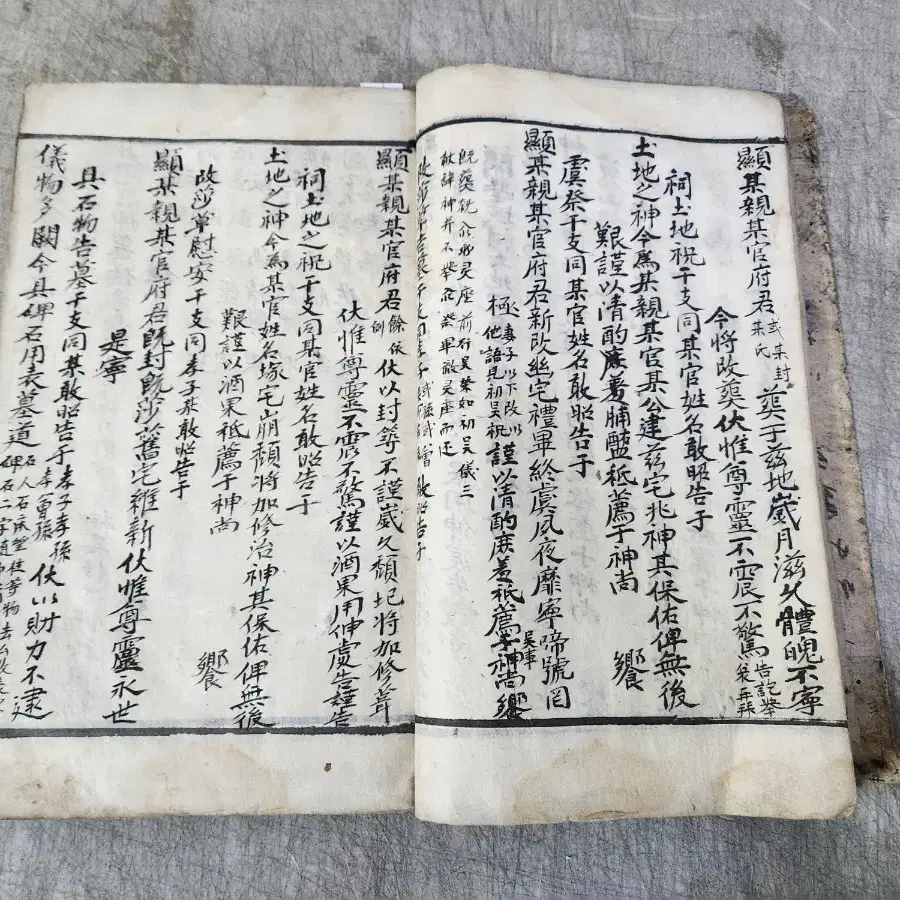 顯某親某官府君或某封某氏葬于玆地歲月滋久體魄不寧
今將改葬伏惟尊靈不震不驚告訖擧哀再拜
祠土地祝干支同某官姓名敢昭告于
土地之神今爲某親某官某公建玆宅兆神其保佑俾無後
艱謹以清酌庶羞脯醢祗薦于神尚饗
虞祭干支同某官姓名敢昭告于
顯某親某官府君新改幽宅禮畢終虞夙夜靡寧啼號罔
極妻子以下改以他語見初吴祝謹以清酌庶羞祗薦于神尚饗
旣葬就靈座前行吴祭如初吴儀三
獻辭神并不擧哀祭畢敵灵座而還
敢昭告于
顯某親某官府君餘依例伏以封築不謹歲久頹圮將加修葺
伏惟尊靈不震不驚謹以酒果用伸虔告謹告
祠土地之祝干支同某官姓名敢昭告于
土地之神今爲某官姓名塚宅崩頹將加修治神其保佑俾無後
艱謹以酒果祗薦于神尚饗
改莎尊慰安干支同孝子某敢昭告于
顯某親某官府君旣封旣莎舊宅維新伏惟尊靈永世
是寧
具石物告墓干支同某敢昭告于孝子孝孫伏以財力不逮
儀物多闕今具碑石用表墓道